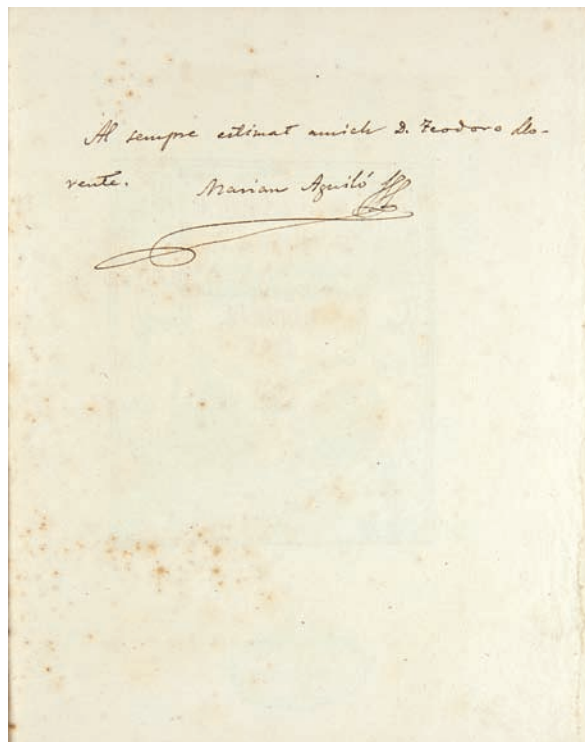 Al sempre estimat amich D. Teodoro Llo-
rente. Marian Aguiló